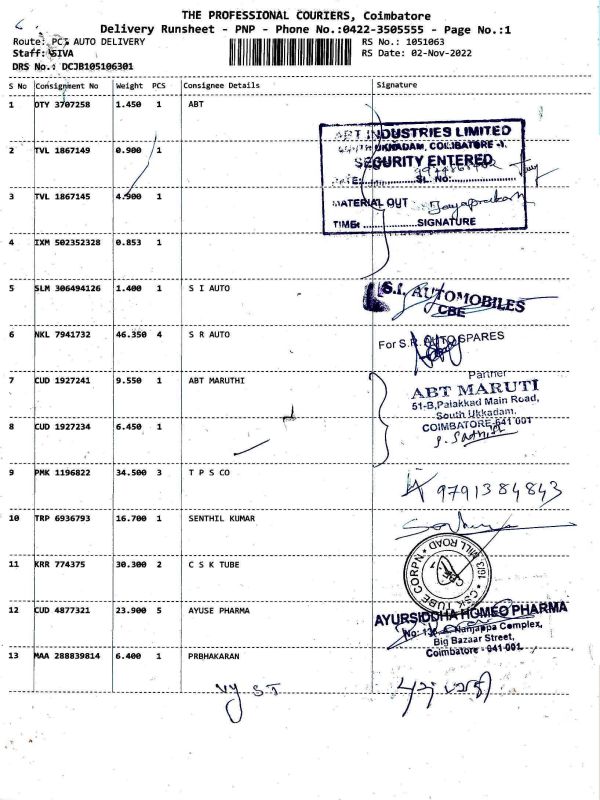 THE PROFESSIONAL COURIERS, Coimbatore
Delivery Runsheet - PNP - Phone No.:0422-3505555 - Page No.:1
Route: PCT AUTO DELIVERY
RS No.: 1051063
Staff: SIVA
RS Date: 02-Nov-2022
DRS No.: DCJB105106301
S No Consignment No Weight PCS Consignee Details Signature
1 OTY 3707258 1.450 1 ABT
ABT INDUSTRIES LIMITED
UKKADAM, COIMBATORE -1.
2 TVL 1867149 0.900 1
SECURITY ENTERED
DATE: SL. No:
3 TVL 1867145 4.900 1
MATERIAL OUT : Jayaprakash
TIME: SIGNATURE
4 IXM 502352328 0.853 1
5 SLM 306494126 1.400 1 S I AUTO
S.I. AUTOMOBILES
CBE
6 NKL 7941732 46.350 4 S R AUTO
For S.R. AUTO SPARES
Partner
7 CUD 1927241 9.550 1 ABT MARUTHI
ABT MARUTI
51-B, Palakkad Main Road,
South Ukkadam,
8 CUD 1927234 6.450 1
COIMBATORE-641 001
9 PMK 1196822 34.500 3 T P S CO
9791384843
10 TRP 6936793 16.700 1 SENTHIL KUMAR
11 KRR 774375 30.300 2 C S K TUBE
CSK TUBE CORPN 16/3, MILL ROAD
CBE-1
12 CUD 4877321 23.900 5 AYUSE PHARMA
AYURSIDDHA HOMEO PHARMA
Nanjappa Complex,
Big Bazaar Street,
Coimbatore - 641 001.
13 MAA 288839814 6.400 1 PRBHAKARAN